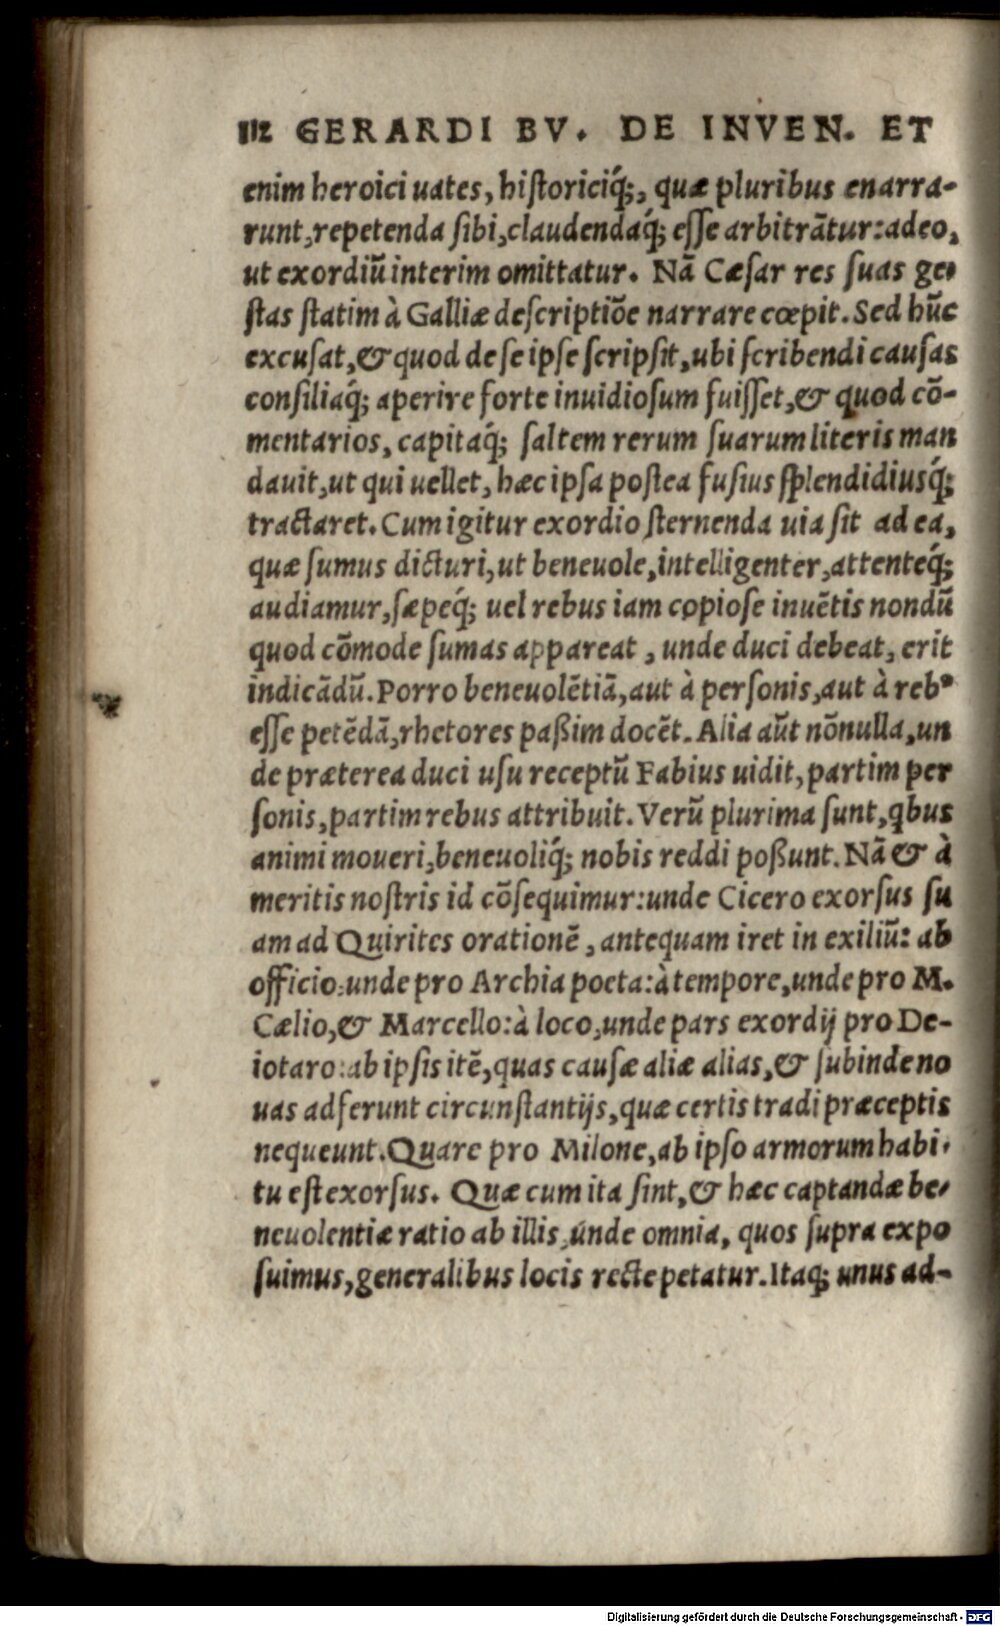 112 GERARDI BV. DE INVEN. ET
enim heroici uates, historiciq́;, quæ pluribus enarra-
runt, repetenda sibi, claudendaq́; esse arbitrãtur: adeo,
ut exordiũ interim omittatur. Nã Cæsar res suas ge-
stas statim à Galliæ descriptiõe narrare cœpit. Sed hũc
excusat, & quod de se ipse scripsit, ubi scribendi causas
consiliaq́; aperire forte inuidiosum fuisset, & quod cõ-
mentarios, capitaq́; saltem rerum suarum literis man
dauit, ut qui uellet, hæc ipsa postea fusius splendidiusq́;
tractaret. Cum igitur exordio sternenda uia sit ad ea,
quæ sumus dicturi, ut beneuole, intelligenter, attenteq́;
audiamur, sæpeq́; uel rebus iam copiose inuẽtis nondũ
quod cõmode sumas appareat, unde duci debeat, erit
indicãdũ. Porro beneuolẽtiã, aut à personis, aut à rebꝰ
esse petẽdã, rhetores paßim docẽt. Alia aũt nõnulla, un
de præterea duci usu receptũ Fabius uidit, partim per
sonis, partim rebus attribuit. Verũ plurima sunt, qbus
animi moueri, beneuoliq́; nobis reddi poßunt. Nã & à
meritis nostris id cõsequimur: unde Cicero exorsus su
am ad Quirites orationẽ, antequam iret in exiliũ: ab
officio: unde pro Archia poeta: à tempore, unde pro M.
Cælio, & Marcello: à loco, unde pars exordij pro De-
iotaro: ab ipsis itẽ, quas causæ aliæ alias, & subinde no
uas adferunt circunstantijs, quæ certis tradi præceptis
nequeunt. Quare pro Milone, ab ipso armorum habi-
tu est exorsus. Quæ cum ita sint, & hæc captandæ be-
neuolentiæ ratio ab illis, unde omnia, quos supra expo
suimus, generalibus locis recte petatur. Itaq; unus ad-
Digitalisierung gefördert durch die Deutsche Forschungsgemeinschaft - DFG